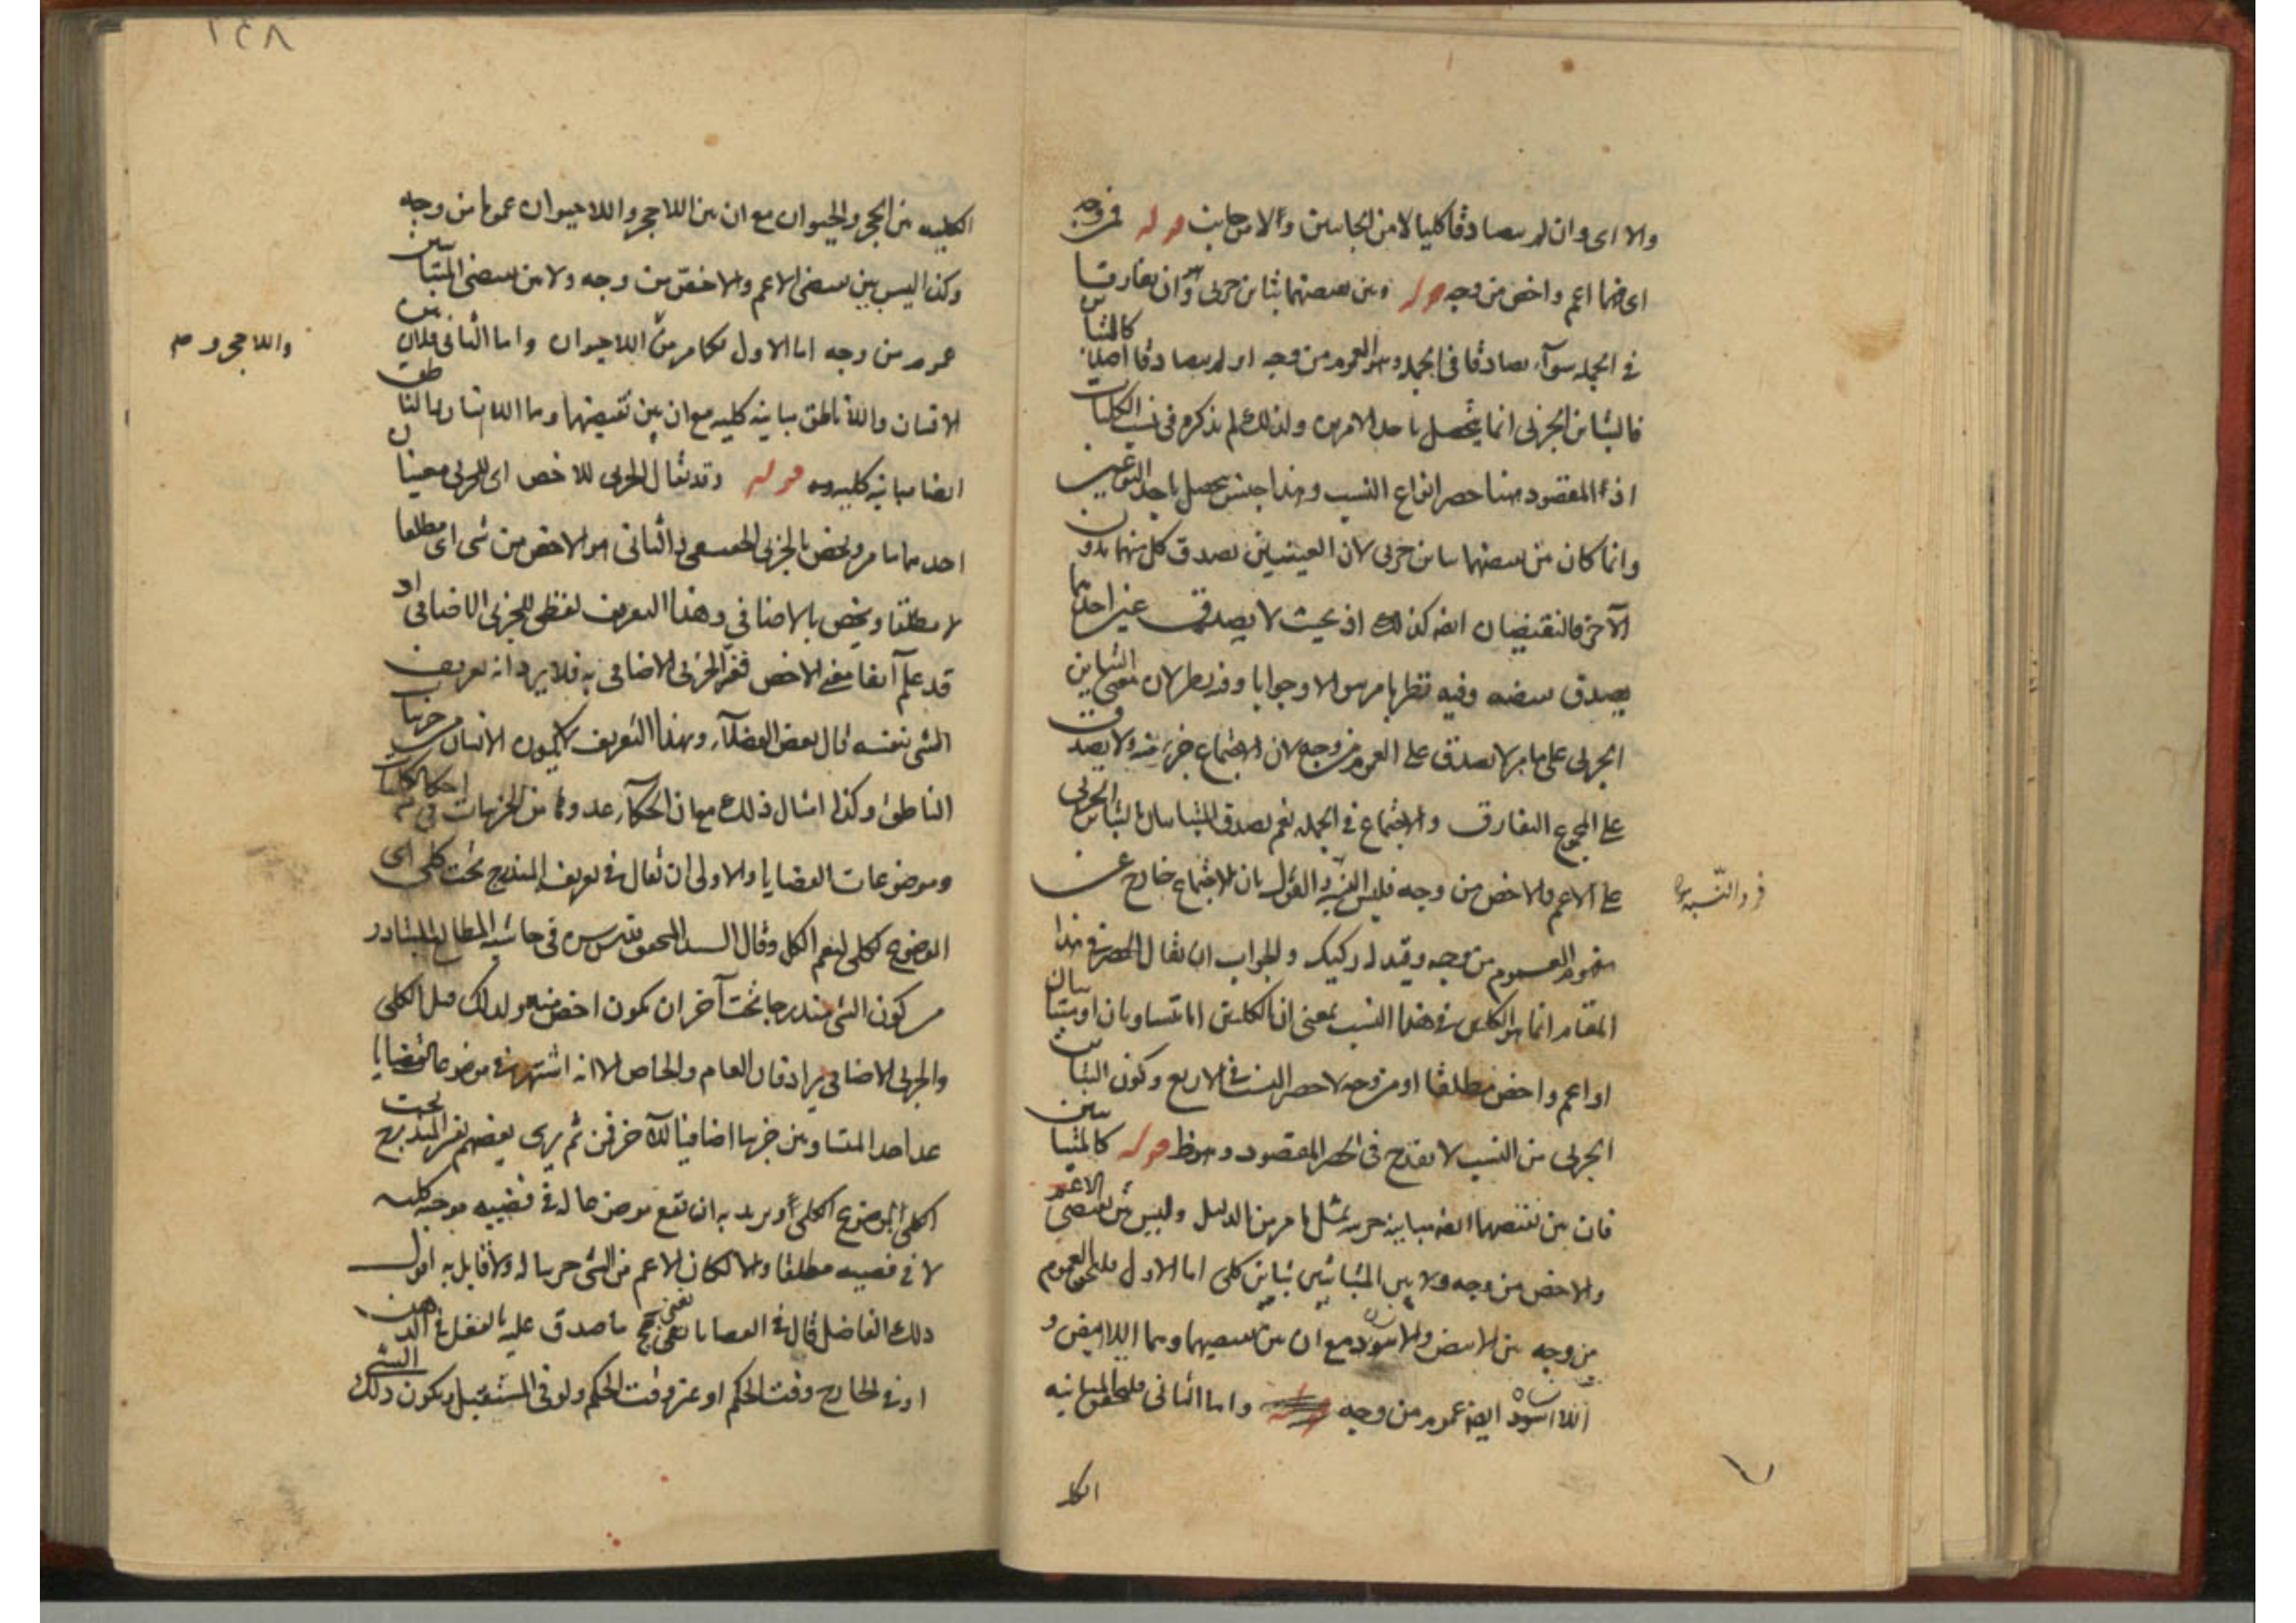 والا اى وان لم يتصادقا كليا لا من الجانبين والا من جانب قوله فمن وجه
اى فهما اعم واخص من وجه قوله وبين نقيضيهما تباين جزئى وهو ان يفارقا
فى الجملة سواء تصادقا فى الجملة وهو العموم من وجه او لم يتصادقا اصلا كالمتباين
فالتباين الجزئى انما يتحصل باحد الامرين ولذلك لم يذكره فى نسب الكليات
اذ المقصود هنا حصر انواع النسب وهذا جنس يحصل باحد النوعين
وانما كان بين نقيضيهما تباين جزئى لان العينين يصدق كل منهما بدون
الآخر فالنقيضان ايضا كذلك اذ بحيث لا يصدق عين احدهما
يصدق نقيضه وفيه نظر بامر سؤالا وجوابا وفيه نظر لان معنى التباين
الجزئى على ما مر لا يصدق على العموم من وجه لان الاجتماع جزء منه ولا يصدق
على المجموع التفارق والاجتماع فى الجملة نعم يصدق المتباينان بالتباين الجزئى
على الاعم والاخص من وجه فليس والقول بان الاجتماع خارج عن
مفهوم العموم من وجه وقيد له ركيك والجواب ان يقال الحصر فى هذا
المقام انما هو الكليين فى هذه النسب بمعنى ان الكليين اما متساويان او متباينان
او اعم واخص مطلقا او من وجه لا حصر النسب فى الاربع وكون التباين
الجزئى من النسب لا يقدح فى الحصر المقصود وهو ظ قوله كالمتباينين
فان بين نقيضيهما ايضا مباينة جزئية بمثل ما مر من الدليل وليس بين نقيضى الاعم
والاخص من وجه ولا بين المتباينين تباين كلى اما الاول فلتحقق العموم
من وجه بين الابيض والاسود مع ان بين نقيضيهما وهما اللاابيض و
اللااسود ايضا عموم من وجه واما الثانى فلتحقق المباينة
الكلـ
الكلية بين الحجر والحيوان مع ان بين اللاحجر واللاحيوان عموما من وجه
وكذا ليس بين نقيضى الاعم والاخص من وجه ولا بين نقيضى المتباينين
عموم من وجه اما الاول فكما مر من اللاحيوان واما الثانى فلان بين
الانسان واللاناطق مباينة كلية مع ان بين نقيضيهما وهما اللاانسان والناطق
ايضا مباينة كلية قوله وقد يقال الجزئى للاخص اى للجزئى معنيان
احدهما ما مر ويخص بالجزئى الحقيقى والثانى هو الاخص من شى اى مطلقا
لا مطلقا ويخص بالاضافي وهذا التعريف لفظى للجزئى الاضافى اذ
قد علم آنفا معنى الاخص ففسر الجزئى الاضافى به فلا يرد انه تعريف
الشى بنفسه قال بعض الفضلاء وبهذا التعريف لا يكون الانسان جزئيا من
الناطق وكذا امثال ذلك مع ان الحكماء عدوها من الجزئيات فى احكام الكليات
وموضوعات القضايا والاولى ان يقال فى تعريفه المندرج تحت كلى اى
الموضوع لكلى ليعم الكل وقال السيد المحقق قدس سره فى حاشية المطالع المتبادر
من كون الشى مندرجا تحت آخر ان يكون اخص منه ولذلك قيل الكلى
والجزئى الاضافى يرادفان العام والخاص الا انه اشتهر فى موضوعات القضايا
عد احد المتساويين جزئيا اضافيا للآخر فمن ثم يرى بعضهم يفسر المندرج تحت
الكلى بالموضوع للكلى ويريد به ان يقع موضوعا له فى قضية موجبة كلية
لا فى قضية مطلقا والا لكان الاعم من الشى جزئيا له ولا قابل به اقول
ذلك الفاضل قال فى القضايا يعنى بج ما صدق عليه بالفعل فى الذهن
او فى الخارج وقت الحكم او غير وقت الحكم ولو فى المستقبل ويكون ذلك الشى
واللاحجر و صح
١٤٨